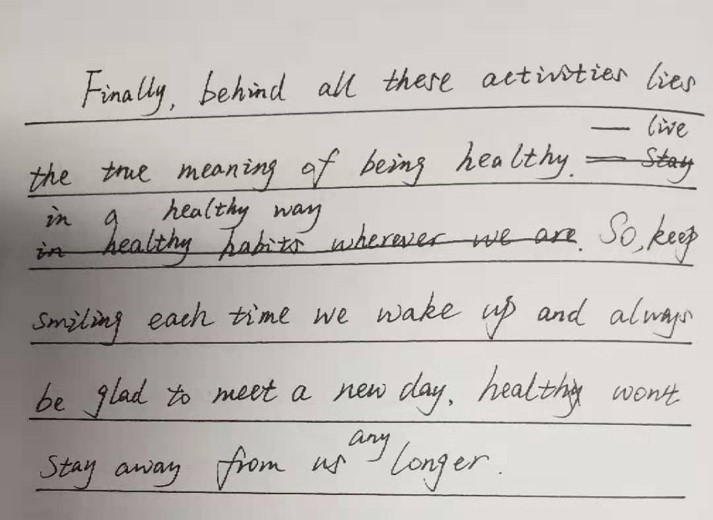 Finally, behind all these activities lies
— live
the true meaning of being healthy. — Stay
in a healthy way
in healthy habits wherever we are. So, keep
smiling each time we wake up and always
be glad to meet a new day, healthy won't
any
Stay away from us longer.